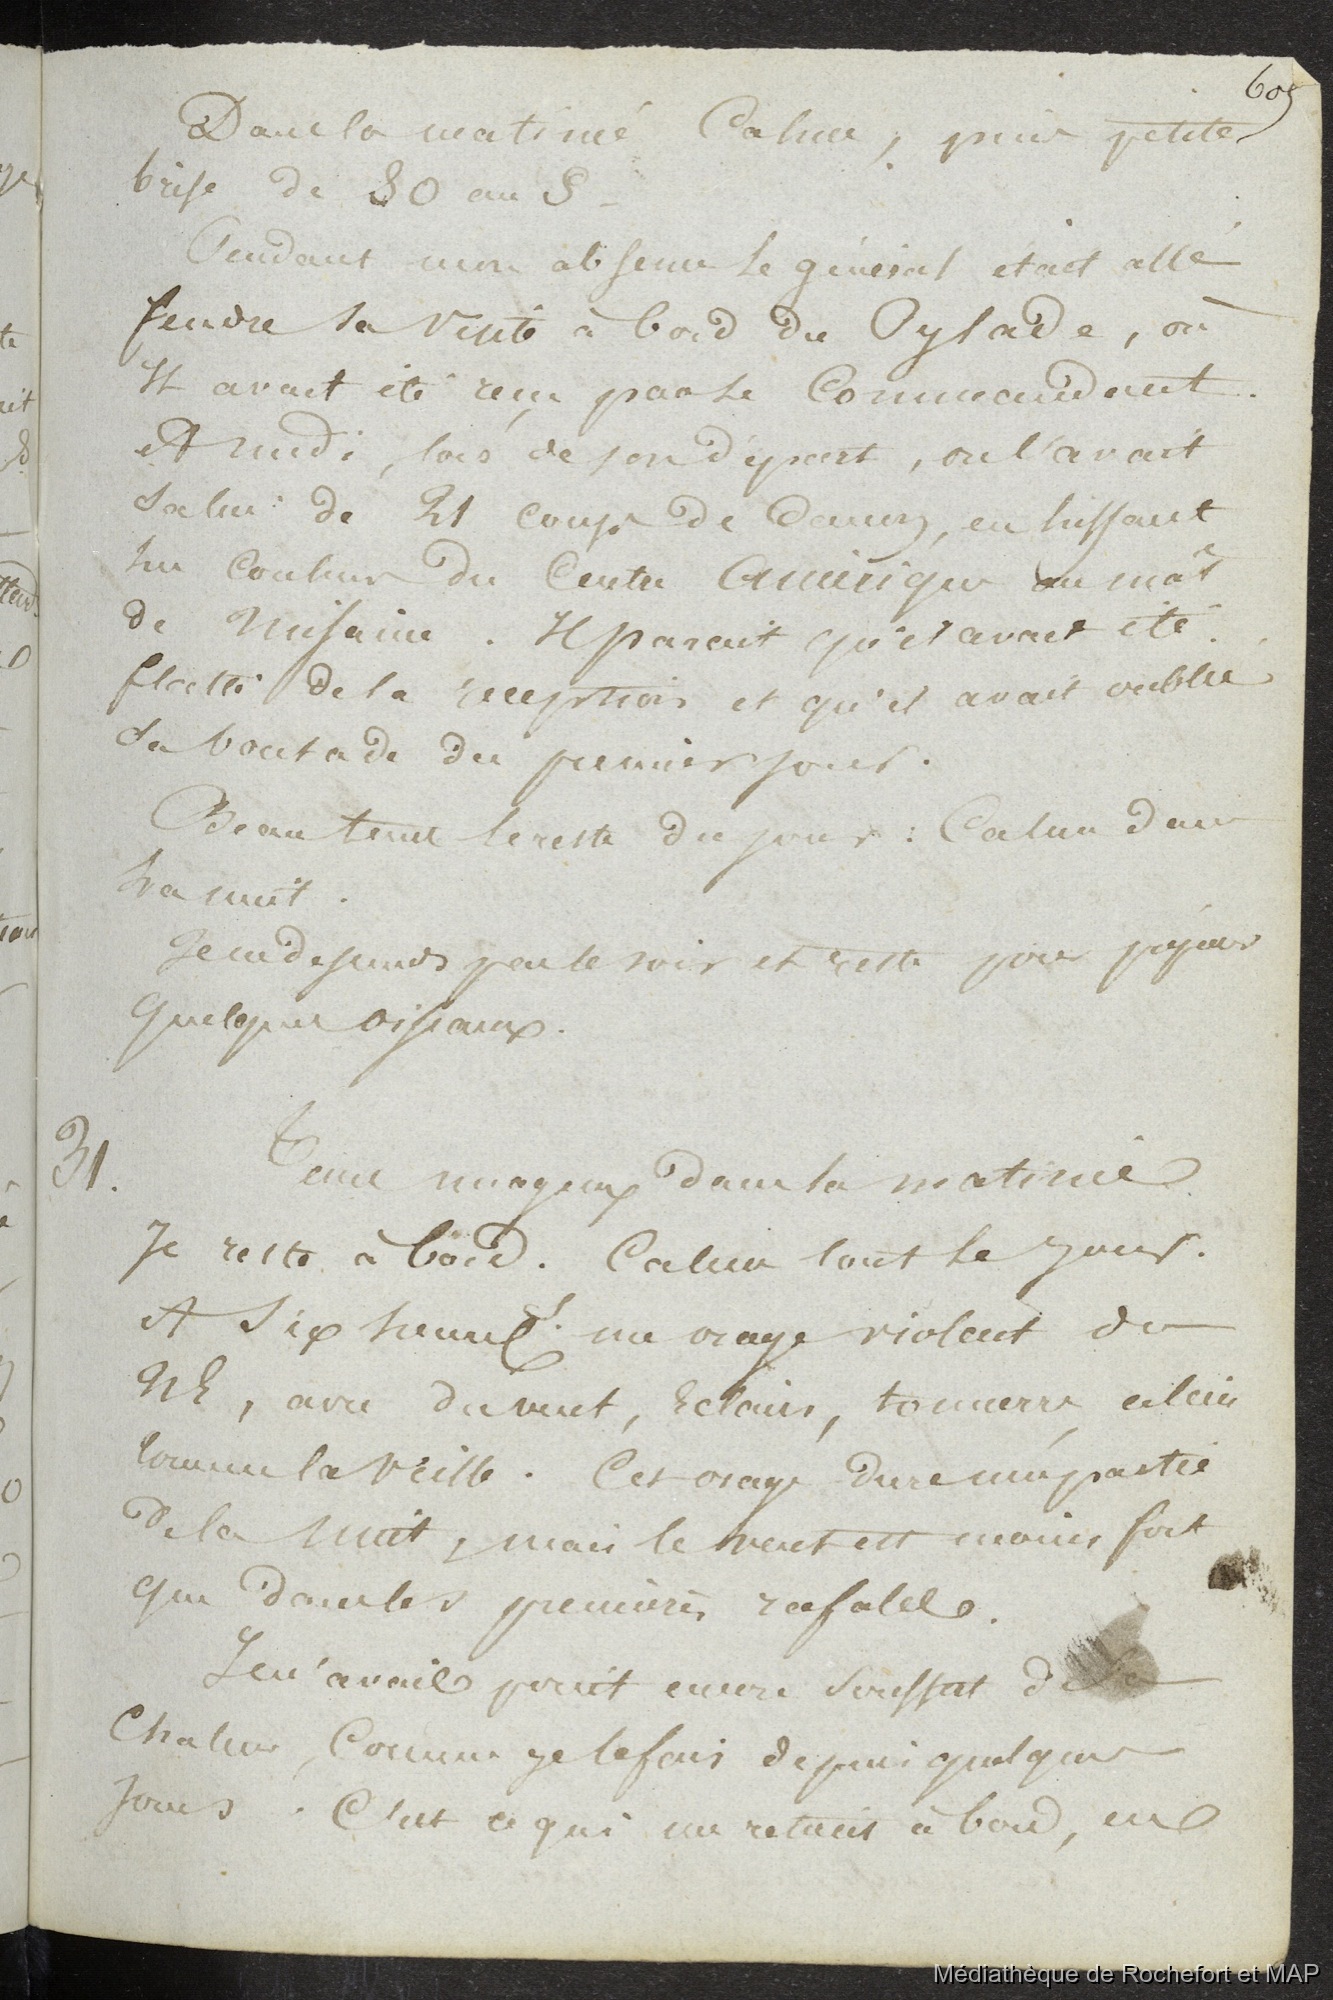 605
Dans la matinée Calme, puis petite
brise de SO au S _
Pendant mon absence le général était allé
rendre sa visite à bord du Pylade, où
Il avait été reçu par le Commandant.
A midi, lors de son départ, on l'avait
salué de 21 coups de canon, en hissant
les couleurs du Centre Amérique au mât
de Misaine. Il parait qu'il avait été
flatté de la reception et qu'il avait oublié
sa boutade du premier jour.
Beau tems le reste du jour : Calme dans
La nuit.
Je ne descends que le soir et reste pour
quelques oiseaux.
31.
Tems nuageux dans la matinée
Je reste à bord. Calme tout le jour.
A Six heures un orage violent du
NE, avec du vent, Eclairs, tonnerre,
comme la veille. Cet orage dure une partie
de la Nuit, mais le vent est moins fort
que dans les premières rafales.
Je n'avais point encore souffert de la
Chaleur, Comme je le fais depuis quelques
Jours. C'est ce qui me retient à bord, en
Médiathèque de Rochefort et MAP